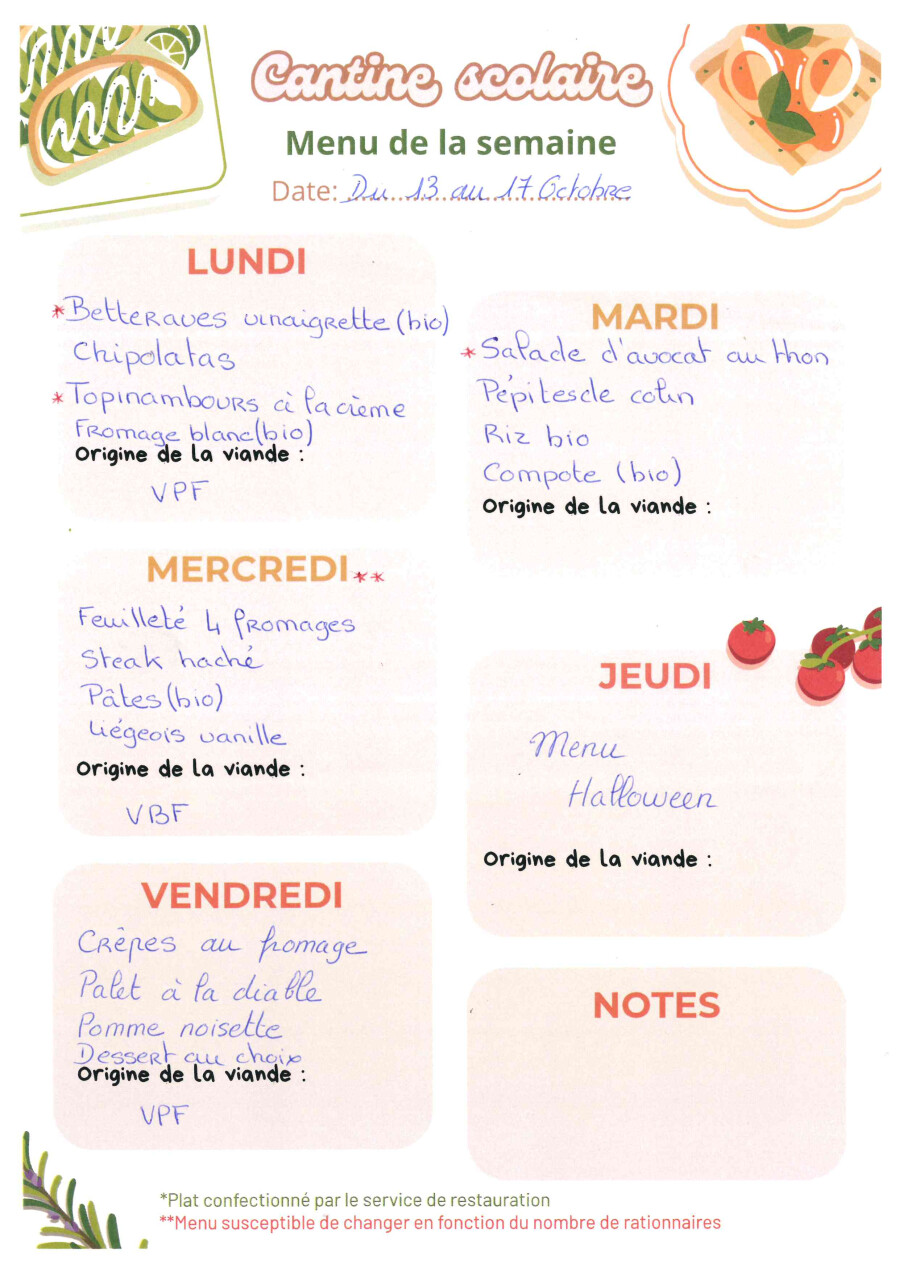 Cantine scolaire
Menu de la semaine
Date: Du 13 au 17 Octobre
LUNDI
*Betteraves vinaigrette (bio)
Chipolatas
*Topinambours à la crème
Fromage blanc (bio)
Origine de la viande :
VPF
MARDI
*Salade d'avocat au thon
Pépites de colin
Riz bio
Compote (bio)
Origine de la viande :
MERCREDI**
Feuilleté 4 fromages
Steak haché
Pâtes (bio)
Liégeois vanille
Origine de la viande :
VBF
JEUDI
Menu
Halloween
Origine de la viande :
VENDREDI
Crêpes au fromage
Palet à la diable
Pomme noisette
Dessert au choix
Origine de la viande :
VPF
NOTES
*Plat confectionné par le service de restauration
**Menu susceptible de changer en fonction du nombre de rationnaires